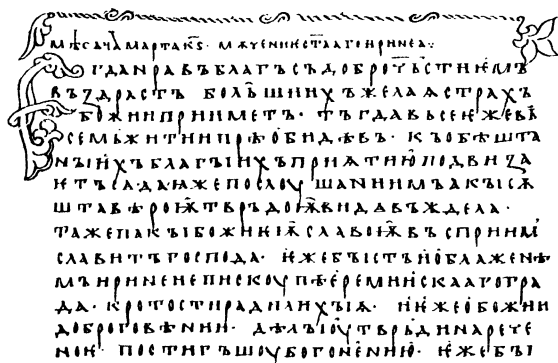 мѣсѧца марта кѕ · мѫчениѥ ст҃ааго иринеа ·
Ѥгда нравъ благъ съ доброч҃ьстиемъ
въздрастъ больш҄иихъ желаѧ страхъ
божии приметъ · тъгда вьсе еже вь
семь житии прѣобидѣвъ · къ обѣшта
ныихъ благыихъ приѧтию подвиза
етъ сѧ да ꙗже послоушаниимъ акы сѫ
шта вѣроѭ тврьдоѭ видѧ въждела ·
та же пакы божиѭ славоѭ въсприим҄
славитъ господа · еже бысть и о блаженѣ
мь иринеи епискоупѣ еремиискааго гра
да · кротости ради лихыѧ · и еже о божии
доброговѣнии · дѣлы оутврьди нарече
ное · постигъшоу бо гонению · еже бы